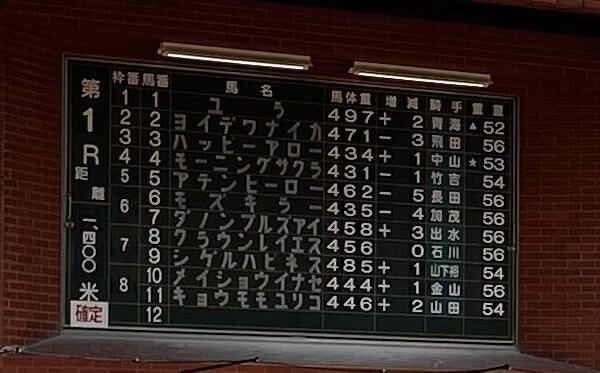 第1R
距離
一、四〇〇米
確定
枠番 馬番 馬名 馬体重 増減 騎手 重量
1 1 ユラ 497 + 2 青海 ▲52
2 2 ヨイデワナイカ 471 − 3 飛田 56
3 3 ハッピーアロー 434 + 1 中山 ★53
4 4 モーニングサクラ 431 − 1 竹吉 54
5 5 アテンヒーロー 462 − 5 長田 56
6 6 モズキラー 435 − 4 加茂 56
7 ダノンブルズアイ 458 + 3 出水 56
7 8 クラウンレイエス 456 0 石川 56
9 シゲルハピネス 485 + 1 山下裕 54
8 10 メイショウイナセ 444 + 1 金山 56
11 キョウモモユリコ 446 + 2 山田 54
12